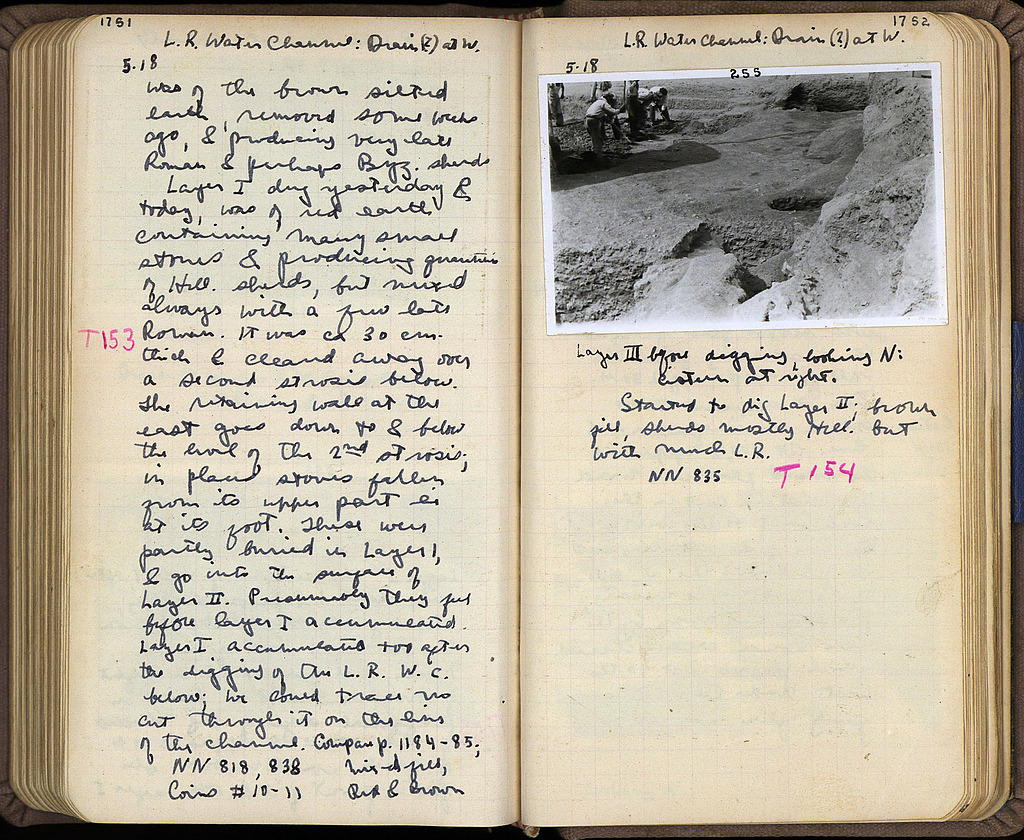 1751
L.R. Water Channel: Drain(?) at W.
5.18
was of the brown silted
earth, removed some weeks
ago, & producing very late
Roman & perhaps Byz. sherds
Layer I dug yesterday &
today, was of red earth
containing many small
stones & producing quantities
of Hell. sherds, but mixed
always with a few late
T153 Roman. It was ca 30 cm.
thick & cleaned away over
a second strosis below.
The retaining wall at the
east goes down to & below
the level of the 2nd strosis;
in places stones fallen
from its upper part lie
at its foot. These were
partly buried in Layer I,
& go into the surface of
Layer II. Presumably they fell
before layer I accumulated.
Layer I accumulated too after
the digging of the L.R. W.C.
below; we could trace no
cut through it on the line
of the channel. Compare p. 1184-85;
NN 818, 838 Mixed fill,
Coins #10-11 Red & Brown
1752
L.R. Water Channel: Drain (?) at W.
5.18
255
Layer III before digging, looking N:
cistern at right.
Started to dig Layer II; brown
fill, sherds mostly Hell. but
with much L.R.
NN 835 T154